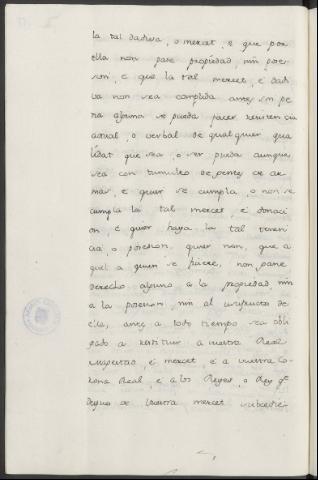 la tal dadiva, o merced, e que por
ella non pase propiedad, nin poses-
sion, e que la tal merced, e dadi
va non sea complida antes sin pe
na alguna se pueda facer resistencia
actual, o verbal de qualquier qua
lidat que sea, o ser pueda aunque
sea con tumulto de gentes de ar
mas, e quier se cumpla, o non se
cumpla la tal merced, e donaci
on, e quier haya la tal tenen
cia, o posesion, quier non, que a
quel a quien se ficiere, non gane
derecho alguno a la propiedad, nin
a la posesion, nin al usufructo de
ella, antes a todo tiempo sea obli
gado a restituir a vuestra Real
Magestad, e merced, e a vuestra Co-
rona Real, e a los Reyes, o Rey qe
despues de vuestra merced subcedie-